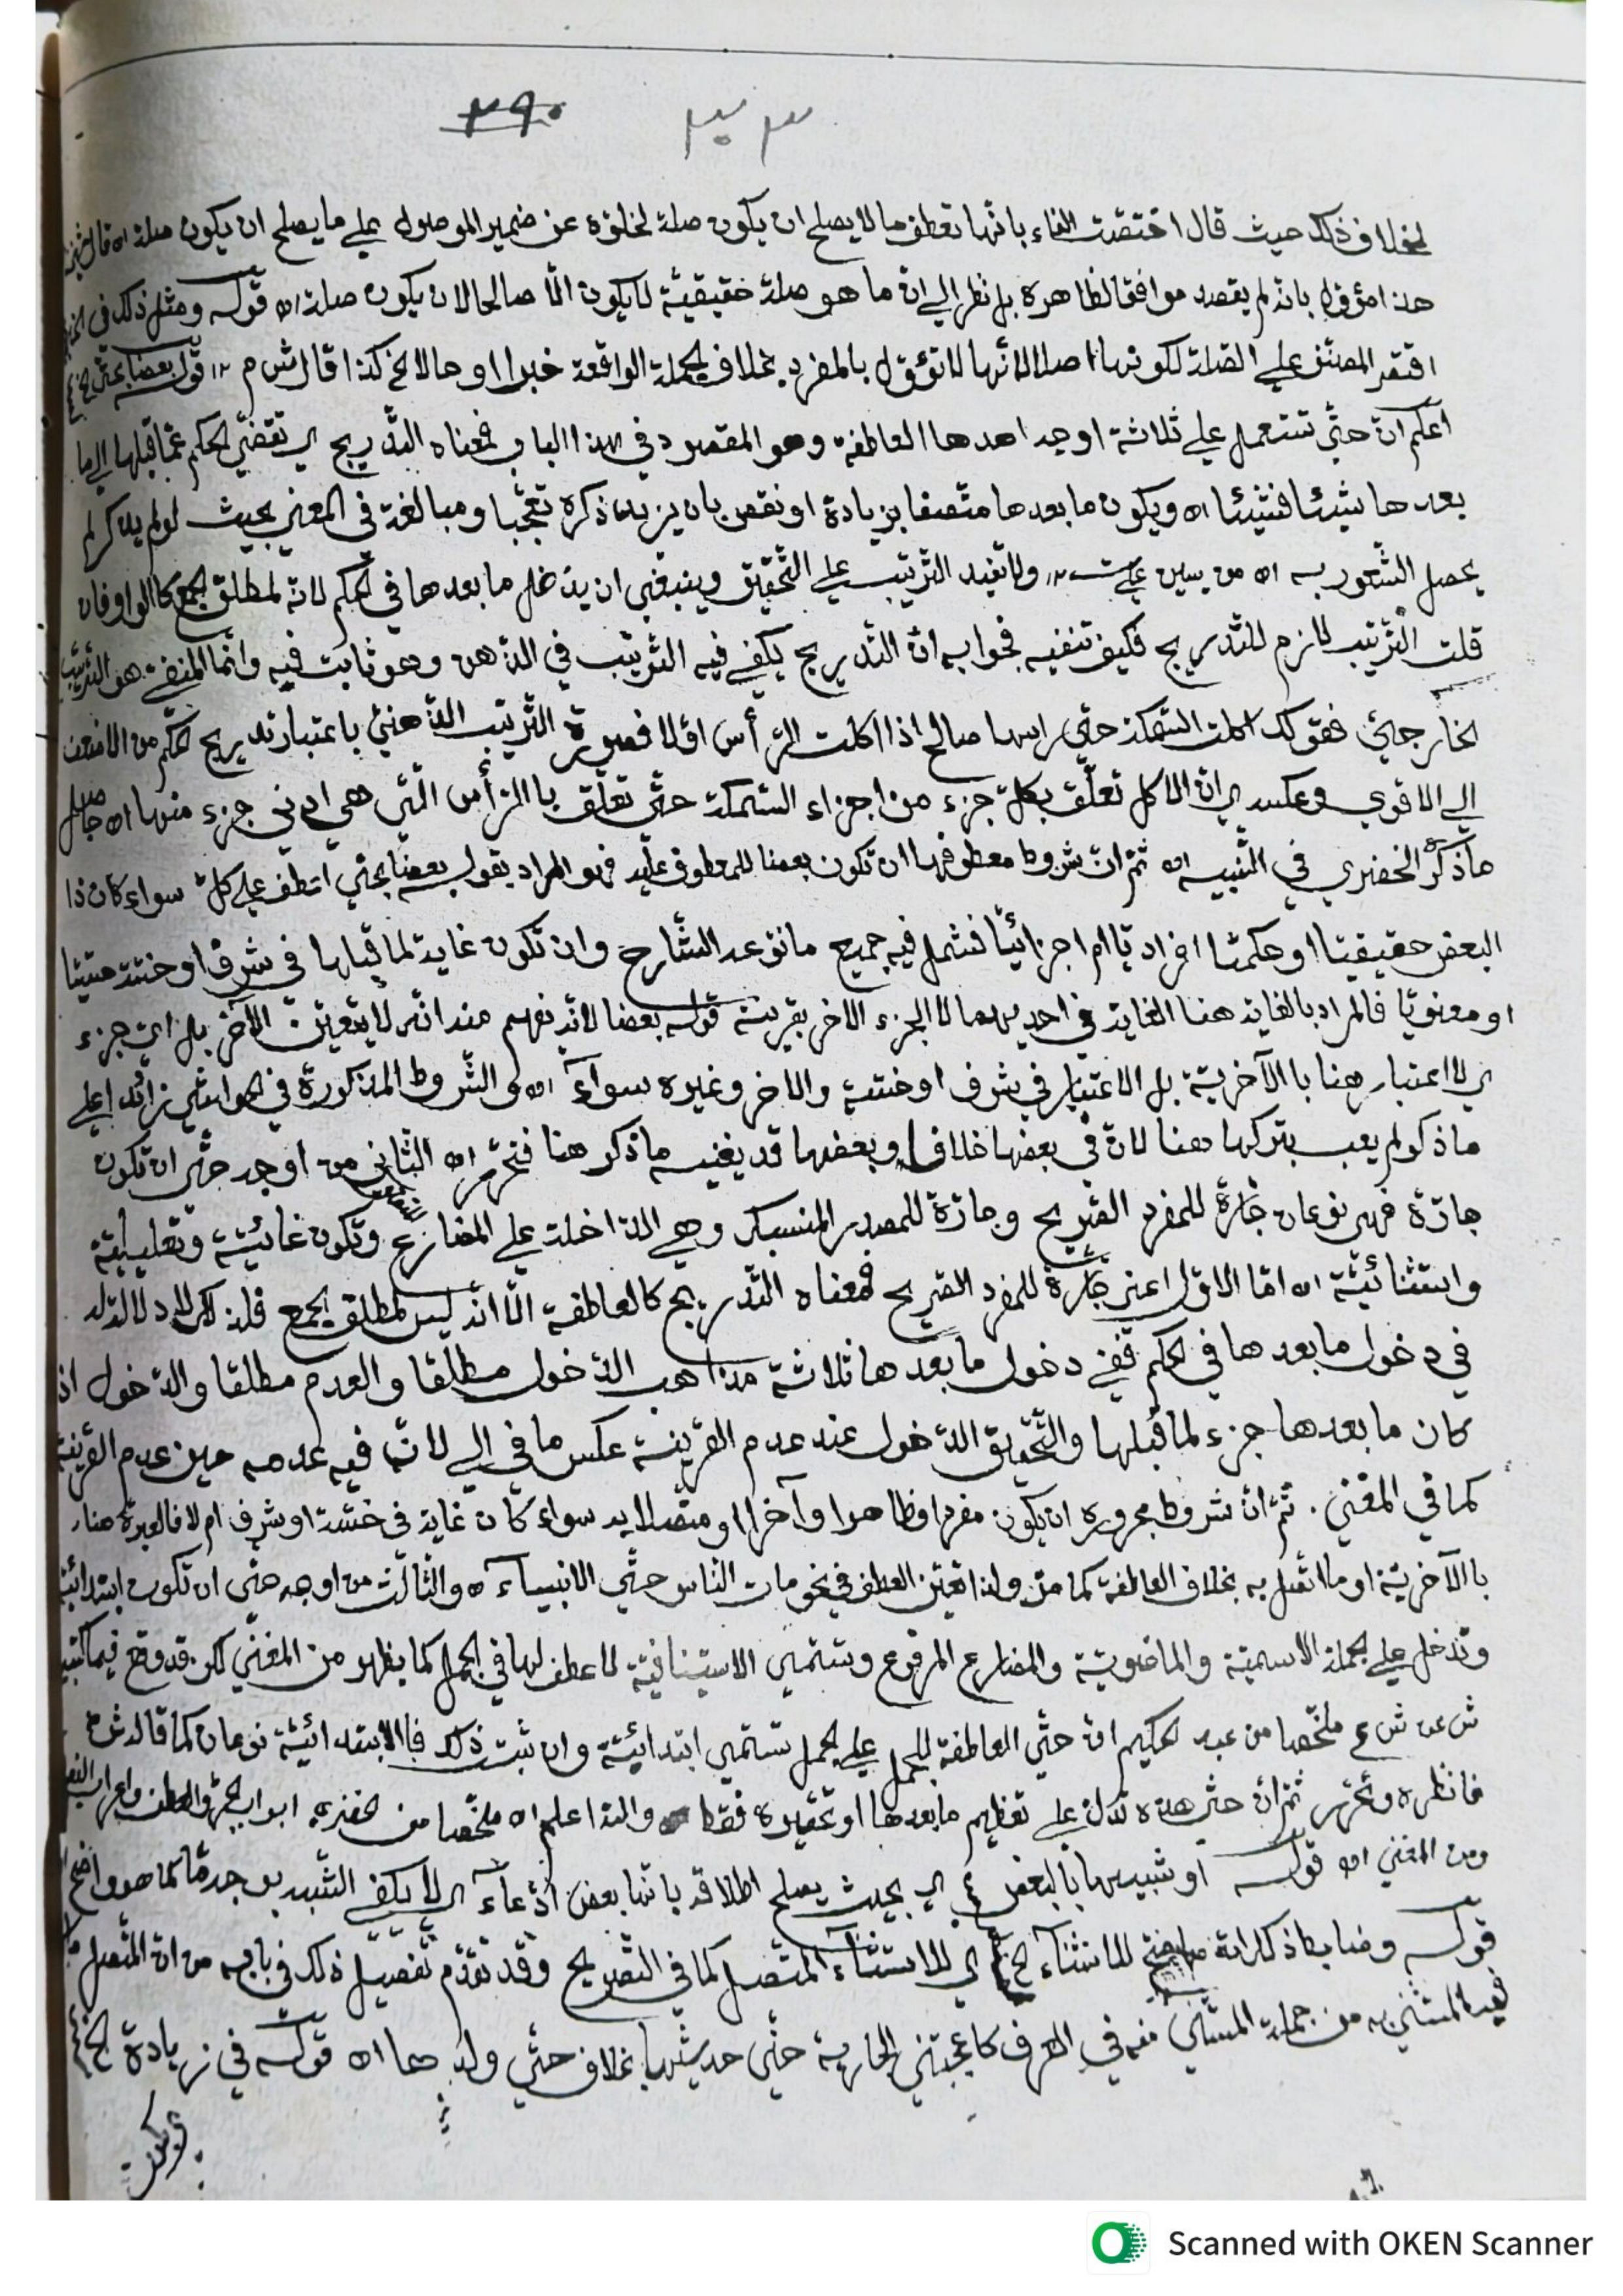 ٣٠٣ ٢٩٠
بخلاف ذلك حيث قال اختصّت الفاء بانّها تعطف ما لا يصلح ان يكون صلة لخلوّه عن ضمير الموصول علي ما يصلح ان يكون صلة اه قال
هذا مؤوّل بانه لم يقصد موافقا لظاهره بل نظر الي انّ ما هو صلة حقيقيّة لا يكون الّا صالحا لان يكون صلة اه قوله ومثل ذلك في
اقتصر المصنّف علي الصّلة لكونها اصلا لانّها لا تؤوّل بالمفرد بخلاف الجملة الواقعة خبرا او حالا الخ كذا قال ش م ١٢ قوله بعضا بحتّي الخ
اعلم انّ حتّي تستعمل علي ثلاثة اوجه احدها العاطفة وهو المقصود في هذا الباب فمعناه التّدريج اي تقضّي الحكم عمّا قبلها الي ما
بعدها شيئا فشيئا اه ويكون ما بعدها متّصفا بزيادة او نقص بان يزيد ذكره تعجّبا ومبالغة في المعني بحيث لو لم يذكر لم
يحصل الشّعور به اه من يسين علي ١٢ ولا تفيد التّرتيب علي التّحقيق وينبغي ان يدخل ما بعدها في الحكم لانّه لمطلق الجمع كالواو فان
قلت التّرتيب لازم للتّدريج فكيف تنفيه فجوابه انّ التّدريج يكفي فيه التّرتيب في الذّهن وهو ثابت فيه وانّما المنفي هو التّرتيب
الخارجيّ فقولك اكلت السّمكة حتّي راسها صالح اذا اكلت الرّأس اوّلا فصورة التّرتيب الذّهنيّ باعتبار تدريج الحكم من الاضعف
الي الاقوي وعكسه اي انّ الاكل تعلّق بكلّ جزء من اجزاء السّمكة حتّي تعلّق بالرّأس الّتي هي ادني جزء منها اه حاصل
ما ذكره الخضري في التّنبيه اه ثمّ انّ شروط معطوفها ان تكون بعضا للمعطوف عليه فهو المراد بقوله بعضا بحتّي اعطف علي كلّ سواء كان ذا
البعض حقيقيّا او حكميّا افراديّا ام اجزائيّا فشمل فيه جميع ما نوّعه الشّارح وان تكون غاية لما قبلها في شرف او خسّة حسيّا
او معنويّا فالمراد بالغاية هنا الغاية في احديهما لا الجزء الآخر بقرينة قوله بعضا لانّه يفهم منه انّه لا يتعيّن الآخر بل ايّ جزء
اي لا اعتبار هنا بالآخريّة بل الاعتبار في شرف او خسّة والآخر وغيره سواء اه والشّروط المذكورة في الحواشي زائدا علي
ما ذكر لم يعب بتركها هنا لانّ في بعضها خلافا وبعضها قد يغنيه ما ذكر هنا فتحرّر اه الثّاني من اوجه حتّي ان تكون
جارّة فهي نوعان جارّة للمفرد الصّريح وجارّة للمصدر المنسبك وهي الدّاخلة علي المضارع وتكون غائيّة وتعليليّة
واستثنائيّة اه امّا الاوّل اعني جارّة للمفرد الصّريح فمعناه التّدريج كالعاطفة الّا انّه ليس لمطلق الجمع فلذلك لا دلالة له
في دخول ما بعدها في الحكم ففي دخول ما بعدها ثلاثة مذاهب الدّخول مطلقا والعدم مطلقا والدّخول ان
كان ما بعدها جزء لما قبلها والتّحقيق الدّخول عند عدم القرينة عكس ما في الي لانّ فيه عدمه حين عدم القرينة
كما في المغني . ثمّ انّ شروط مجروره ان يكون مفردا وظاهرا وآخرا او متّصلا به سواء كان غاية في خسّة او شرف ام لا فالعبرة هنا
بالآخريّة او ما اتّصل به بخلاف العاطفة كما مرّ ولذا تعيّن العطف في نحو مات الناس حتّي الانبياء اه والثّالث من اوجه حتّي ان تكون ابتدائيّة
وتدخل علي الجملة الاسميّة والماضويّة والمضارع المرفوع وتسمّي الاستينافيّة لا عطف لها في الجمل كما يظهر من المغني لكن قد وقع فيما كتبه
ش عن ش ع ملخّصا من عبد الحكيم انّ حتّي العاطفة للجمل علي الجمل تسمّي ابتدائيّة وان ثبت ذلك فالابتدائيّة نوعان كما قاله ش
فانظره وتحرّر ثمّ انّ حتّي هذه تدلّ علي تعظيم ما بعدها او تحقيره فقط والله اعلم اه ملخّصا من خضري ابواب الجرّ والعطف واعراب الفعل
ومن المغني اه قوله او شبيهها بالبعض اي بحيث يصلح اطلاقه بانّها بعض ادّعاء اي لا يكفي الشّبه بوجه مّا كما هو واضح
قوله وضابط ذلك انّه صحّ الاستثناء الخ اي للاستثناء المتّصل كما في التّصريح وقد تقدّم تفصيل ذلك في بابه من انّ المتّصل
المستثني به من جملة المستثني منه في العرف كاعجبتني الجارية حتّي حديثها بخلاف حتّي ولدها اه قوله في زيادة الخ
Scanned with OKEN Scanner